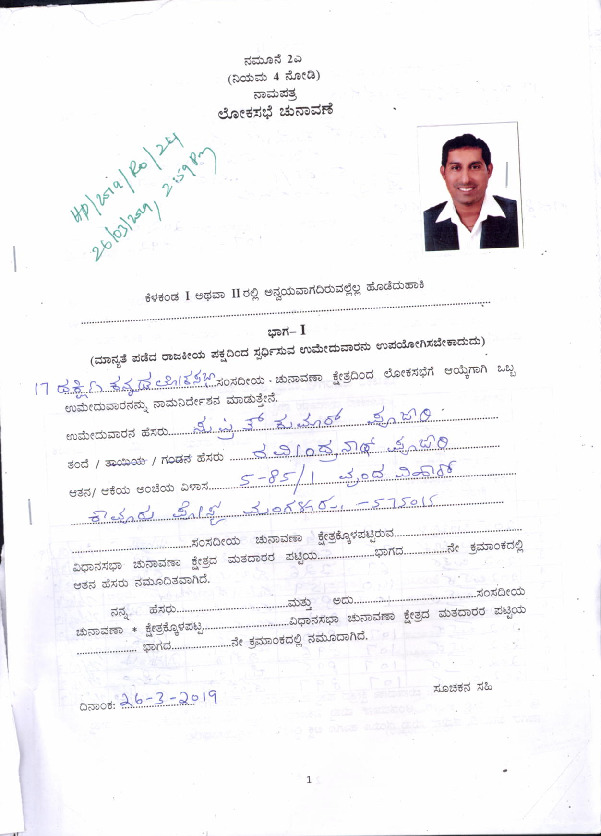 ನಮೂನೆ 2ಎ
(ನಿಯಮ 4 ನೋಡಿ)
ನಾಮಪತ್ರ
ಲೋಕಸಭೆ ಚುನಾವಣೆ
HP/2019/RO/24
26/03/2019, 2:59 Pm
ಕೆಳಕಂಡ I ಅಥವಾ II ರಲ್ಲಿ ಅನ್ವಯವಾಗದಿರುವಲ್ಲೆಲ್ಲ ಹೊಡೆದುಹಾಕಿ
ಭಾಗ– I
(ಮಾನ್ಯತೆ ಪಡೆದ ರಾಜಕೀಯ ಪಕ್ಷದಿಂದ ಸ್ಪರ್ಧಿಸುವ ಉಮೇದುವಾರನು ಉಪಯೋಗಿಸಬೇಕಾದುದು)
17 ದಕ್ಷಿಣ ಕನ್ನಡ ಲೋಕಸಭಾ ಸಂಸದೀಯ ಚುನಾವಣಾ ಕ್ಷೇತ್ರದಿಂದ ಲೋಕಸಭೆಗೆ ಆಯ್ಕೆಗಾಗಿ ಒಬ್ಬ
ಉಮೇದುವಾರನನ್ನು ನಾಮನಿರ್ದೇಶನ ಮಾಡುತ್ತೇನೆ.
ಉಮೇದುವಾರನ ಹೆಸರು ಸುಪ್ರೀತ್ ಕುಮಾರ್ ಪೂಜಾರಿ
ತಂದೆ / ತಾಯಿಯ / ಗಂಡನ ಹೆಸರು ರವೀಂದ್ರನಾಥ್ ಪೂಜಾರಿ
ಆತನ/ ಆಕೆಯ ಅಂಚೆಯ ವಿಳಾಸ 5-85/1 ವೃಂದ ವಿಹಾರ್
ಕಾವೂರು ಪೋಸ್ಟ್ ಮಂಗಳೂರು -575015
ಸಂಸದೀಯ ಚುನಾವಣಾ ಕ್ಷೇತ್ರಕ್ಕೊಳಪಟ್ಟಿರುವ
ವಿಧಾನಸಭಾ ಚುನಾವಣಾ ಕ್ಷೇತ್ರದ ಮತದಾರರ ಪಟ್ಟಿಯ ಭಾಗದ ನೇ ಕ್ರಮಾಂಕದಲ್ಲಿ
ಆತನ ಹೆಸರು ನಮೂದಿತವಾಗಿದೆ.
ನನ್ನ ಹೆಸರು ಮತ್ತು ಅದು ಸಂಸದೀಯ
ಚುನಾವಣಾ * ಕ್ಷೇತ್ರಕ್ಕೊಳಪಟ್ಟ ವಿಧಾನಸಭಾ ಚುನಾವಣಾ ಕ್ಷೇತ್ರದ ಮತದಾರರ ಪಟ್ಟಿಯ
ಭಾಗದ ನೇ ಕ್ರಮಾಂಕದಲ್ಲಿ ನಮೂದಾಗಿದೆ.
ದಿನಾಂಕ: 26-3-2019
ಸೂಚಕನ ಸಹಿ
1